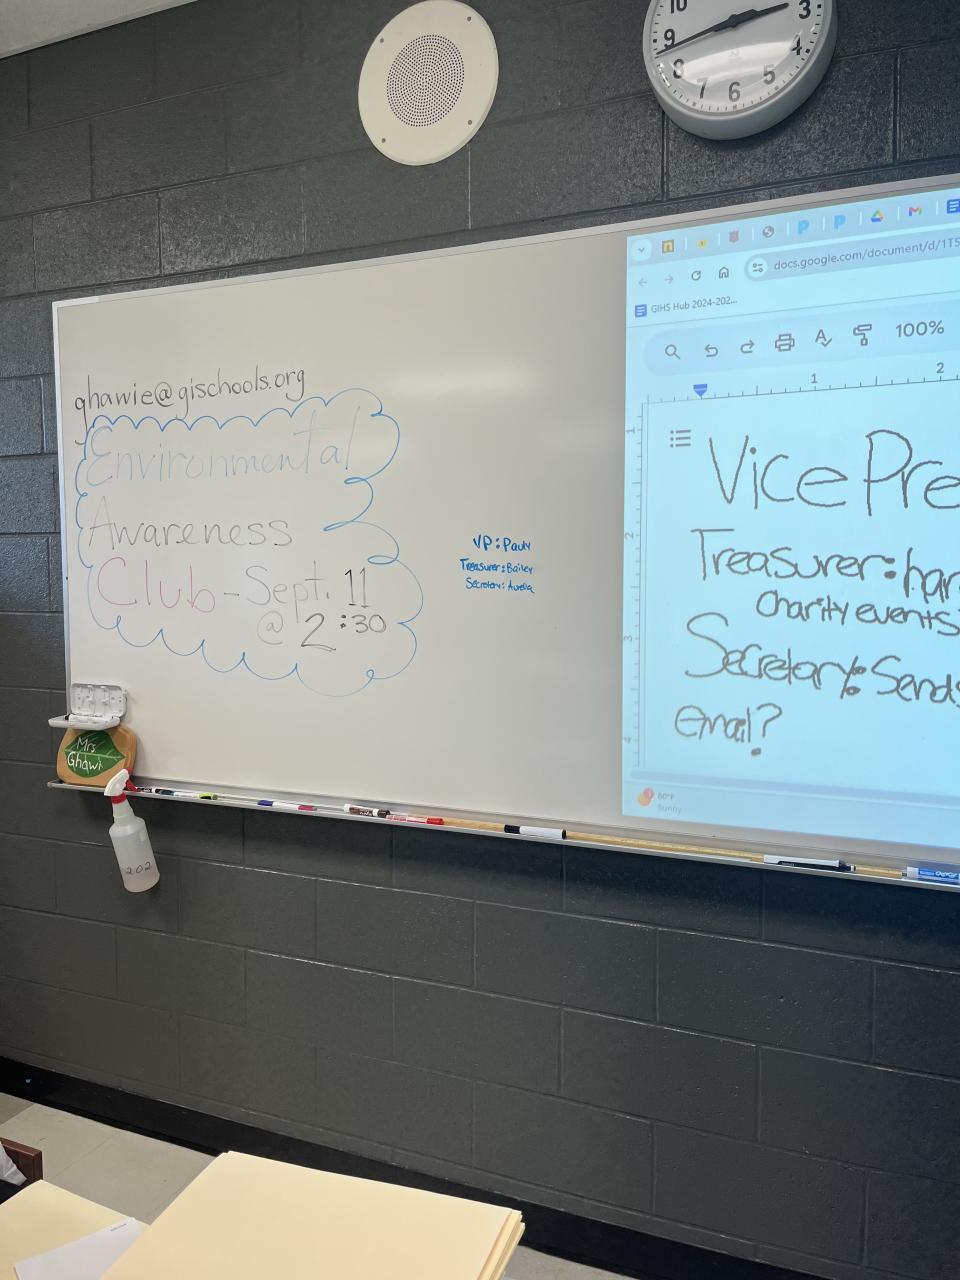 10
9
8
7
6
5
4
3
ghawie@gischools.org
Environmental
Awareness
Club - Sept. 11
@ 2:30
VP: Pauly
Treasurer: Bailey
Secretary: Aurelia
docs.google.com/document/d/1T5
GIHS Hub 2024-202...
100%
1
2
1
2
3
4
Vice Pre
Treasurer: han
Charity events
Secretary: Sends
email?
80°F
Sunny
Mrs
Ghawi
202